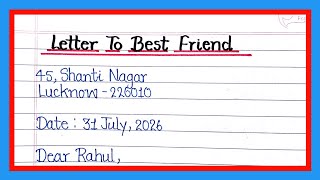 Letter To Best Friend
45, Shanti Nagar
Lucknow - 226010
Date : 31 July, 2026
Dear Rahul,